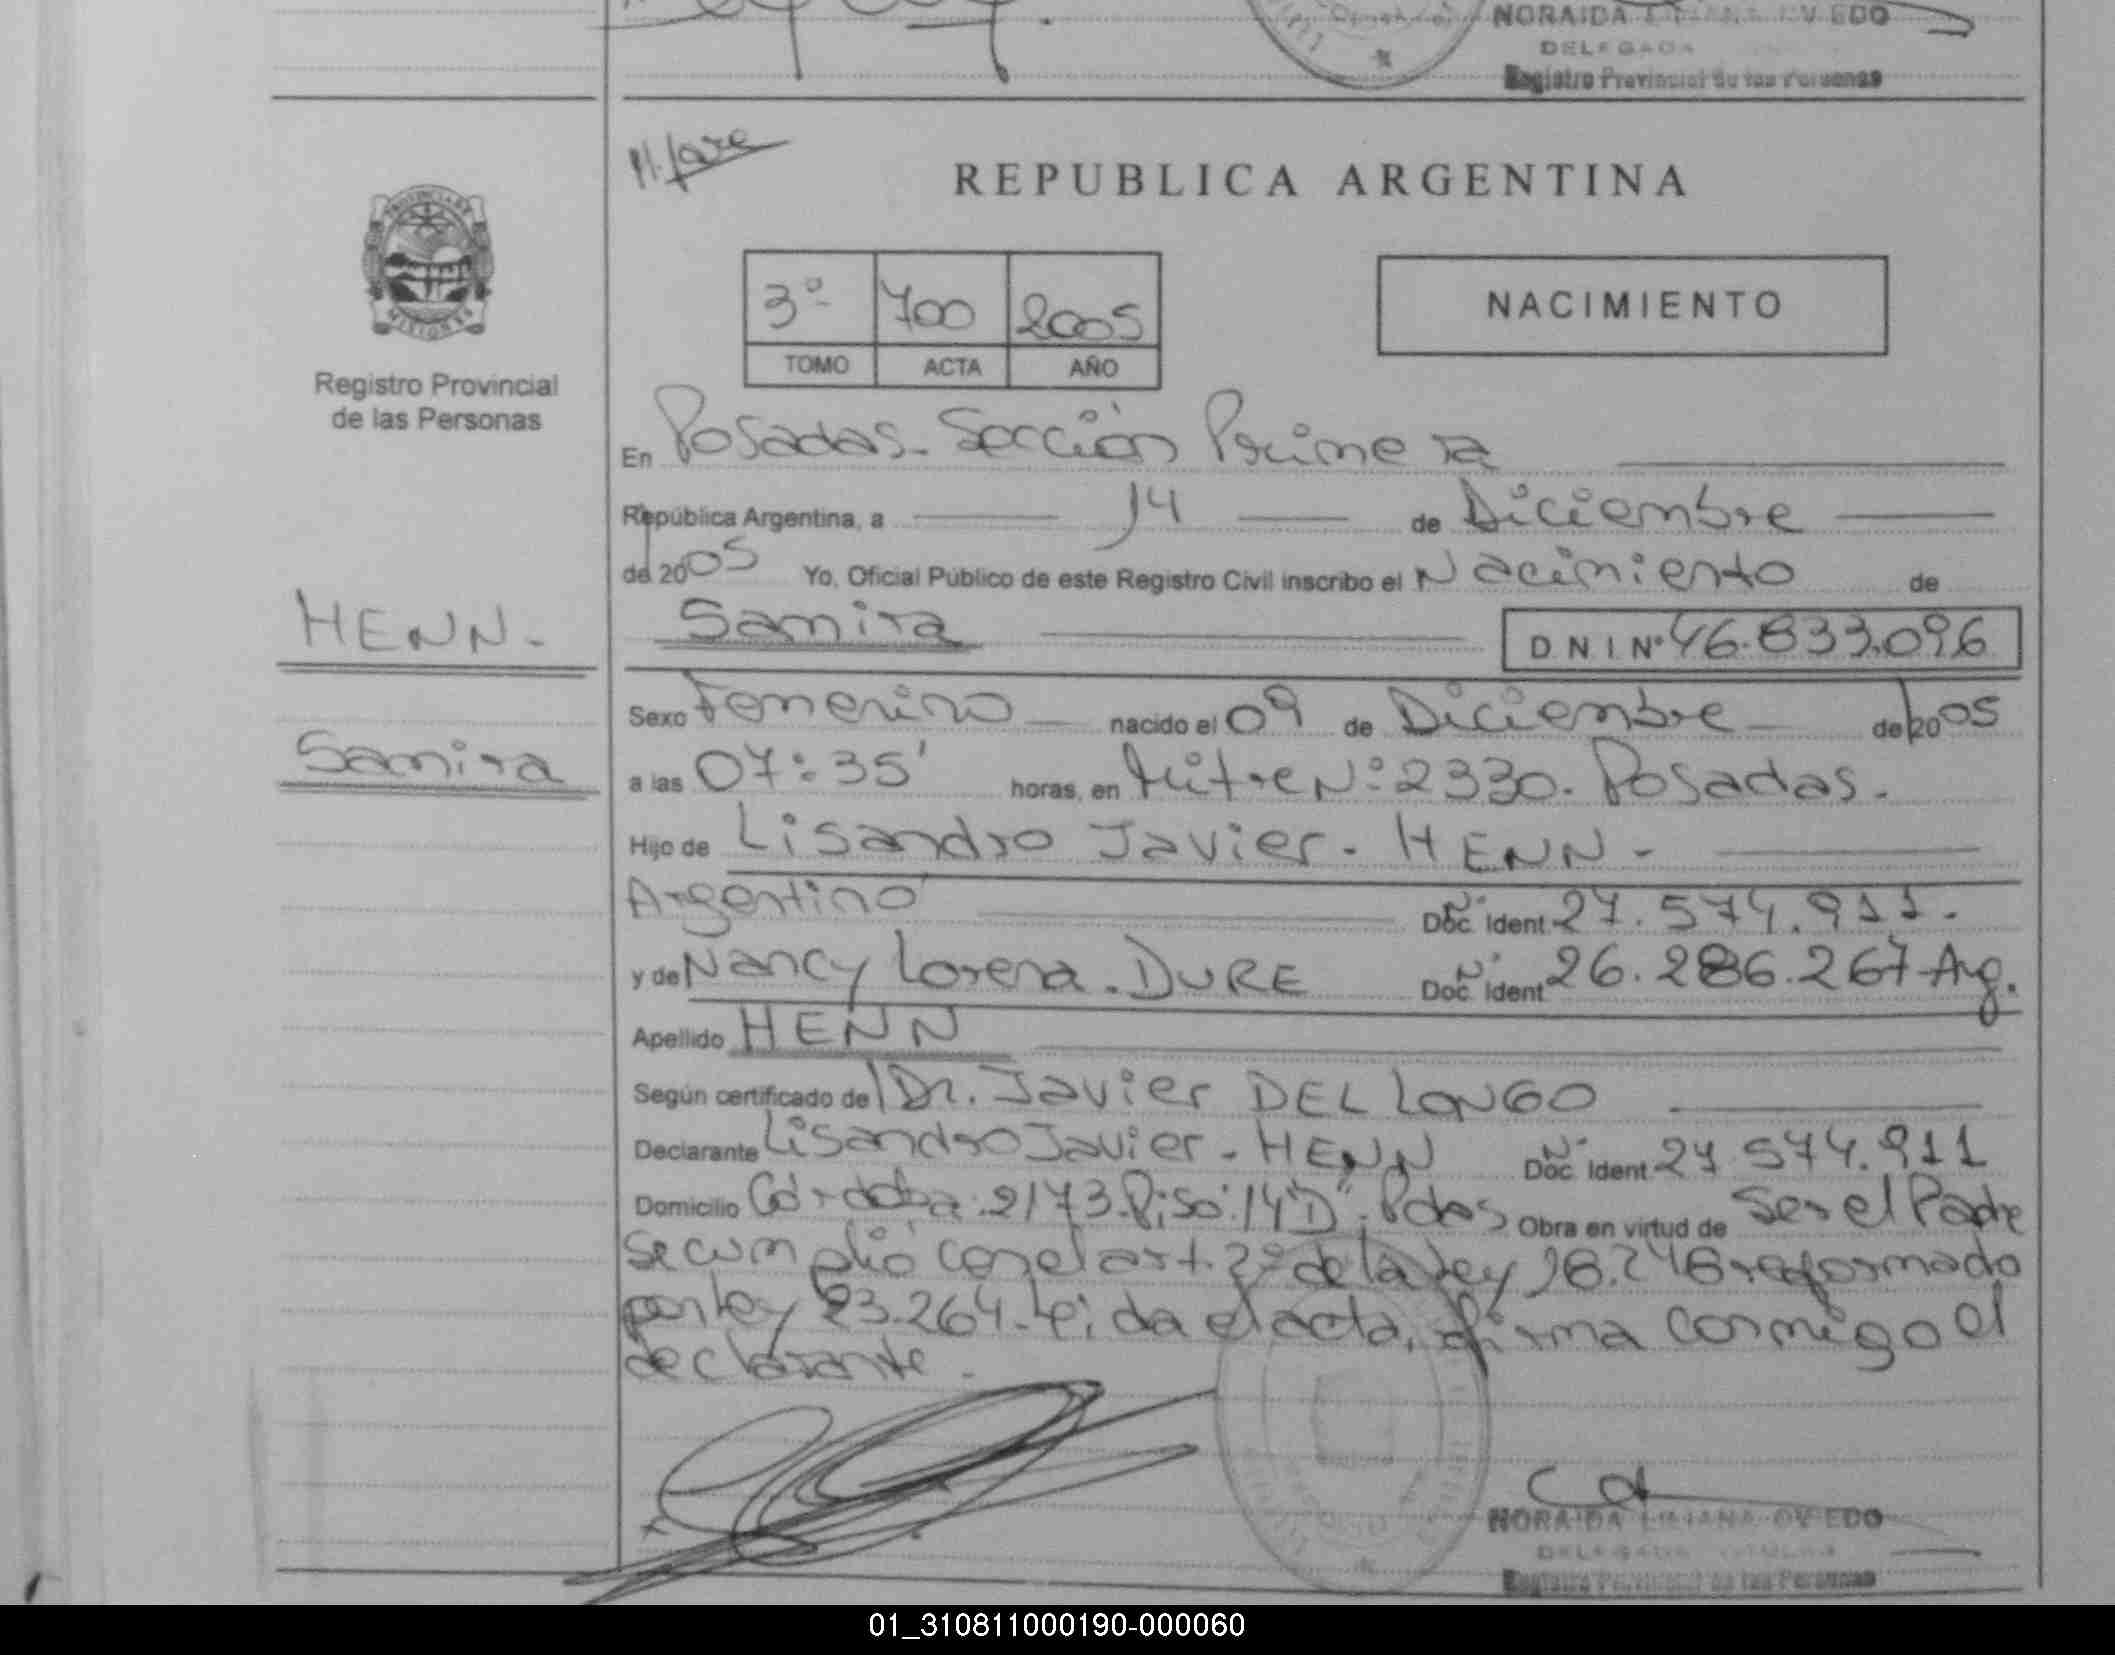 NORAIDA LILIANA OVIEDO
DELEGADA
Registro Provincial de las Personas
REPUBLICA ARGENTINA
PROVINCIA DE
MISIONES
Registro Provincial
de las Personas
3º 700 2005
TOMO ACTA AÑO
NACIMIENTO
En Posadas. Sección Primera
República Argentina, a 14 de Diciembre
de 2005 Yo, Oficial Público de este Registro Civil inscribo el Nacimiento de
HENN.
Samira D.N.I. Nº 46.833.096
Sexo Femenino nacido el 09 de Diciembre de 2005
Samira
a las 07:35' horas, en Mitre Nº 2330. Posadas.
Hijo de Lisandro Javier. HENN.
Argentino Doc. Ident Nº 27.574.911.
y de Nancy Lorena. DURE Doc. Ident Nº 26.286.267 Arg.
Apellido HENN
Según certificado de Dr. Javier DEL LONGO
Declarante Lisandro Javier. HENN Doc. Ident Nº 27 574.911
Domicilio Córdoba. 2173. Piso: 14 "D". Pdas Obra en virtud de Ser el Padre
Se cumplió con el art. 2º de la Ley 18.248 reformado
por Ley 23.264. Leida el acta, firma conmigo el
declarante.
NORAIDA LILIANA OVIEDO
DELEGADA TITULAR
Registro Provincial de las Personas
01_310811000190-000060